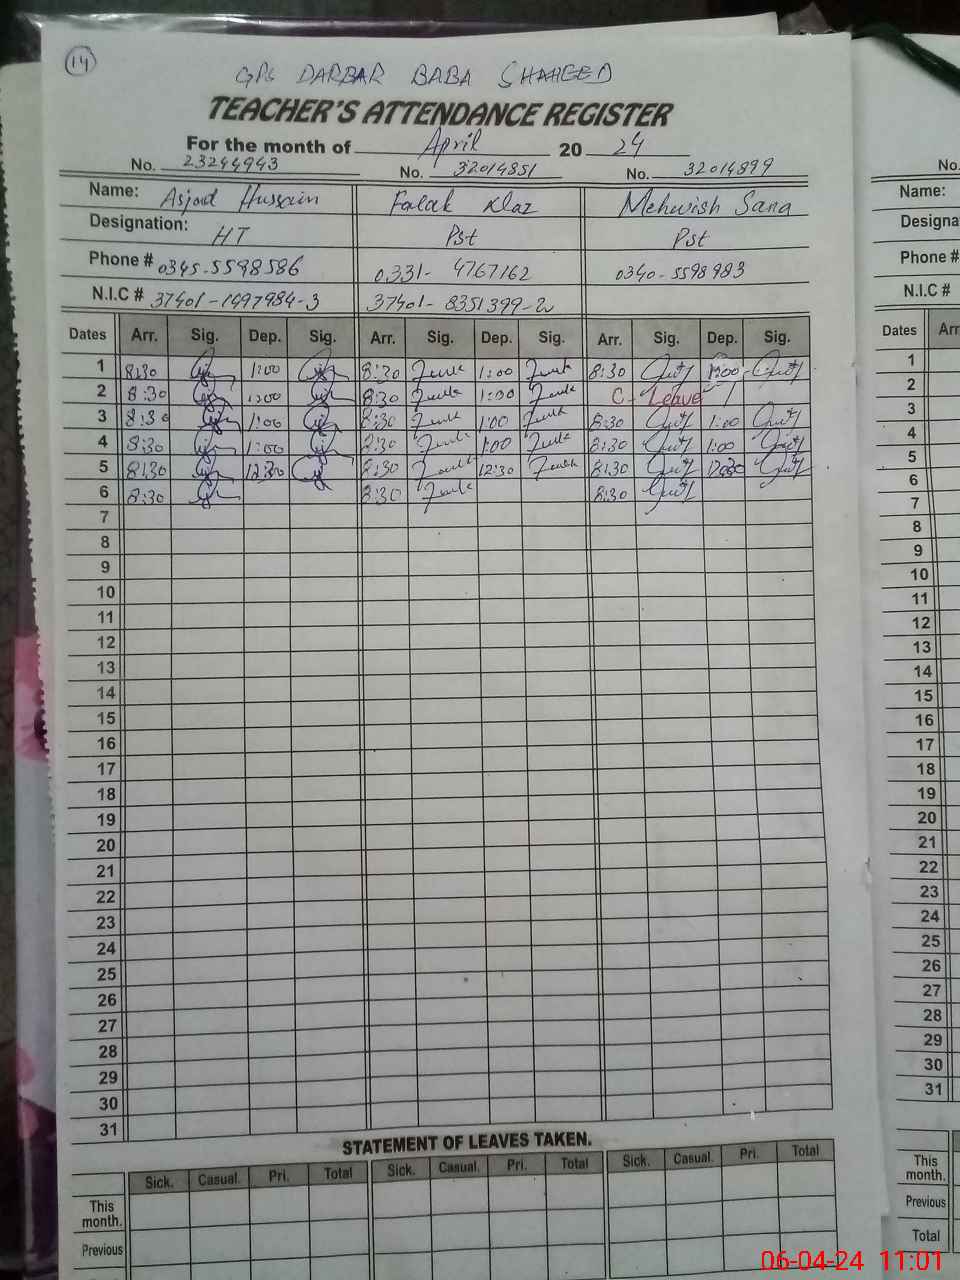 14
GPS DARBAR BABA SHAHEED
TEACHER'S ATTENDANCE REGISTER
For the month of April 20 24
No. 23244943 No. 32014851 No. 32014899 No.
Name: Asjad Hussain Falak Naz Mehwish Sana Name:
Designation: HT Pst Pst Designa
Phone # 0345-5598586 0331-4767162 0340-5598983 Phone #
N.I.C # 37401-1497984-3 37401-8351399-2 N.I.C #
Dates Arr. Sig. Dep. Sig. Arr. Sig. Dep. Sig. Arr. Sig. Dep. Sig. Dates Arr
1 8:30 1:00 8:30 1:00 8:30 1:00 1
2 8:30 1:00 8:30 1:00 C- Leave 2
3 8:30 1:00 8:30 1:00 8:30 1:00 3
4 8:30 1:00 8:30 1:00 8:30 1:00 4
5 8:30 12:30 8:30 12:30 8:30 12:30 5
6 8:30 8:30 8:30 6
7 7
8 8
9 9
10 10
11 11
12 12
13 13
14 14
15 15
16 16
17 17
18 18
19 19
20 20
21 21
22 22
23 23
24 24
25 25
26 26
27 27
28 28
29 29
30 30
31 31
STATEMENT OF LEAVES TAKEN.
Sick. Casual. Pri. Total Sick. Casual. Pri. Total Sick. Casual. Pri. Total
This month. This month.
Previous Previous
Total
06-04-24 11:01